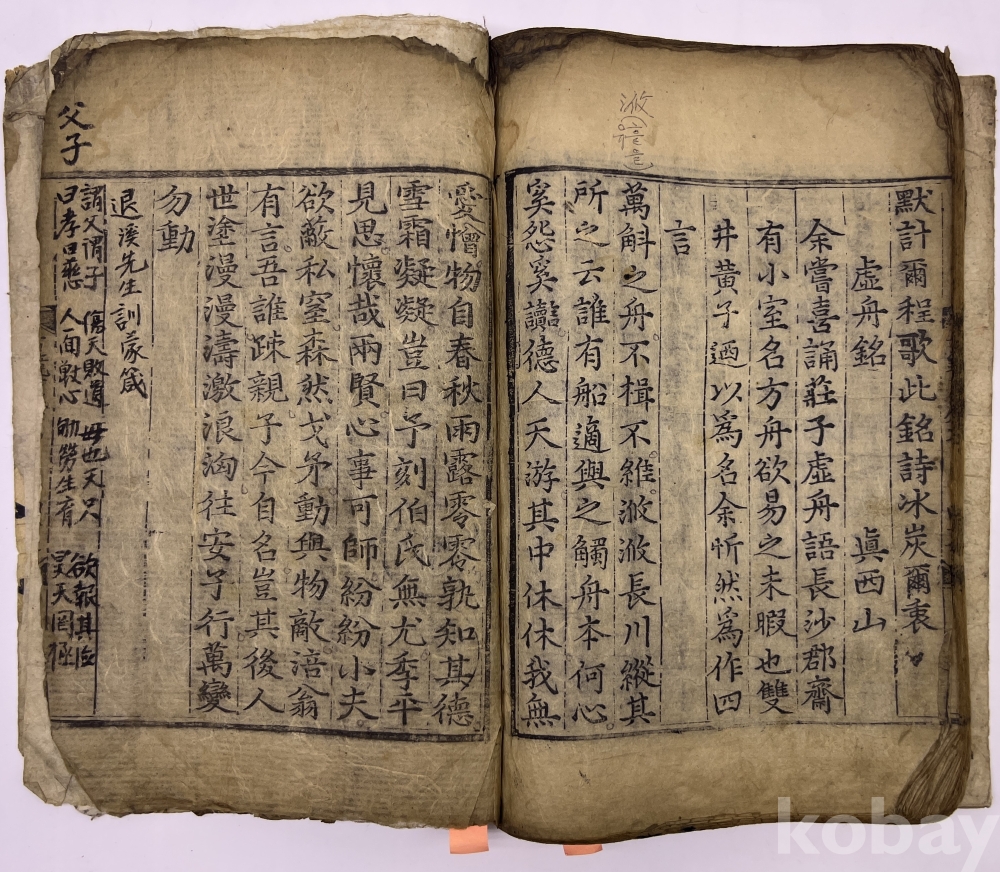 默計爾程歌此銘詩冰炭爾衷
虛舟銘 眞西山
余嘗喜誦莊子虛舟語長沙郡齋
有小室名方舟欲易之未暇也雙
井黃子迺以爲名余忻然爲作四
言
浟
萬斛之舟不楫不維浟浟長川縱其
所之云誰有船適與之觸舟本何心
奚怨奚讟德人天游其中休休我無
愛憎物自春秋雨露零零孰知其德
雪霜凝凝豈曰予刻伯氏無尤季平
見思懷哉兩賢心事可師紛紛小夫
欲蔽私窒森然戈矛動與物敵涪翁
有言吾誰疎親子今自名豈其後人
世塗漫漫濤激浪洶往安子行萬變
勿動
退溪先生訓蒙箴
父子
謂父謂子 傷天敗道 母也天只 欲報其
曰孝曰慈 人面獸心 劬勞生育 昊天罔極
kobay